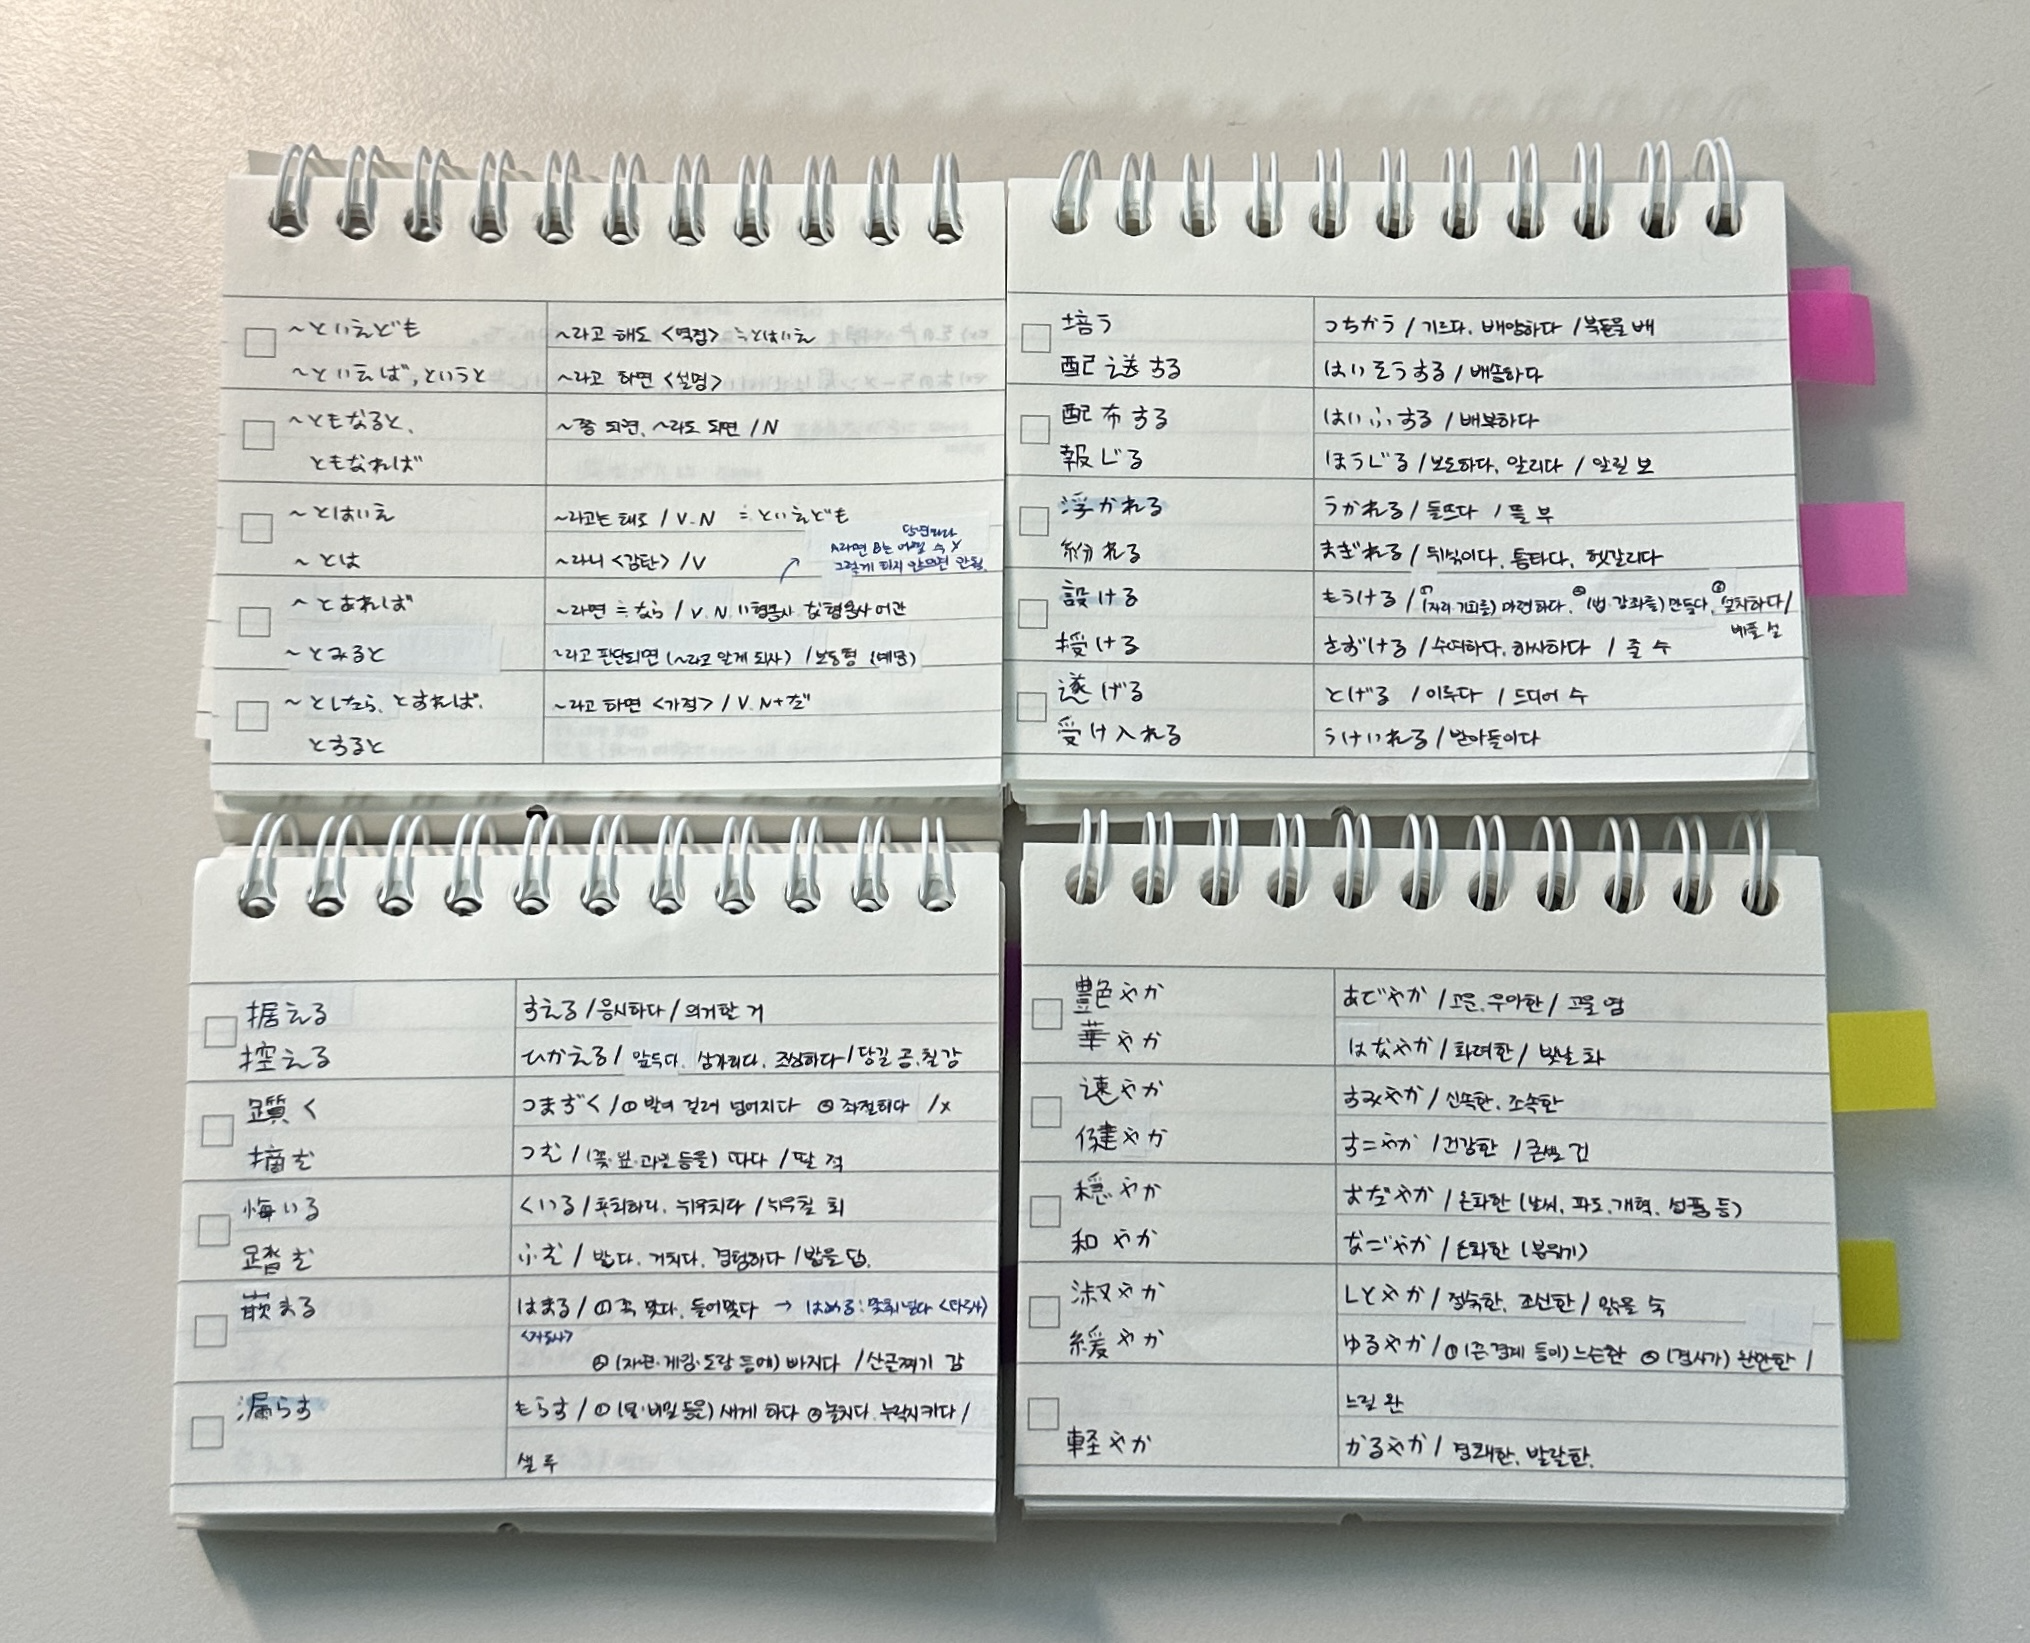 ~といえども
~라고 해도 <역접> ≒とはいえ
~といえば, というと
~라고 하면 <설명>
~ともなると,
~쯤 되면, ~라도 되면 / N
ともなれば
~とはいえ
~라고는 해도 / V. N ≒ といえども
당연하다
A라면 B는 어쩔 수 X
그렇게 되지 않으면 안됨.
~とは
~라니 <감탄> / V
~とあれば
~라면 ≒ なら / V. N. い형용사 な형용사 어간
~とみると
~라고 판단되면 (~라고 알게 되자) / 보통형
~としたら, とすれば,
~라고 하면 <가정> / V. N+だ
とすると
培う
つちかう / 기르다, 배양하다 / 북돋을 배
配送する
はいそうする / 배송하다
配布する
はいふする / 배부하다
報じる
ほうじる / 보도하다, 알리다 / 알릴 보
浮かれる
うかれる / 들뜨다 / 뜰 부
紛れる
まぎれる / 뒤섞이다, 틈타다, 헷갈리다
設ける
もうける / ①(자리·기회를) 마련하다. ②(법·강좌를) 만들다. ③설치하다 /
베풀 설
授ける
さずける / 수여하다, 하사하다 / 줄 수
遂げる
とげる / 이루다 / 드디어 수
受け入れる
うけいれる / 받아들이다
据える
すえる / 응시하다 / 의거할 거
控える
ひかえる / 앞두다, 삼가하다, 조심하다 / 당길 공, 칠 강
躓く
つまずく / ① 발에 걸려 넘어지다 ② 좌절하다 / x
摘む
つむ / (꽃·잎·과일 등을) 따다 / 딸 적
悔いる
くいる / 후회하다, 뉘우치다 / 뉘우칠 회
踏む
ふむ / 밟다. 거치다. 경험하다 / 밟을 답.
嵌まる
はまる / ① 꼭 맞다. 들어맞다 → はめる: 맞춰넣다 <타동사>
<자동사>
② (자면·게임·도랑 등에) 빠지다 / 산골짜기 감
漏らす
もらす / ① (물·비밀 등을) 새게 하다 ② 놓치다. 누락시키다 /
샐 루
艶やか
あでやか / 고운. 우아한 / 고울 염
華やか
はなやか / 화려한 / 빛날 화
速やか
すみやか / 신속한, 조속한
健やか
すこやか / 건강한 / 굳셀 건
穏やか
おだやか / 온화한 (날씨, 파도, 개혁, 성품 등)
和やか
なごやか / 온화한 (분위기)
淑やか
しとやか / 정숙한, 조신한 / 맑을 숙
緩やか
ゆるやか / ① (끈·경계 등이) 느슨한 ② (경사가) 완만한 /
느릴 완
軽やか
かるやか / 경쾌한, 발랄한.